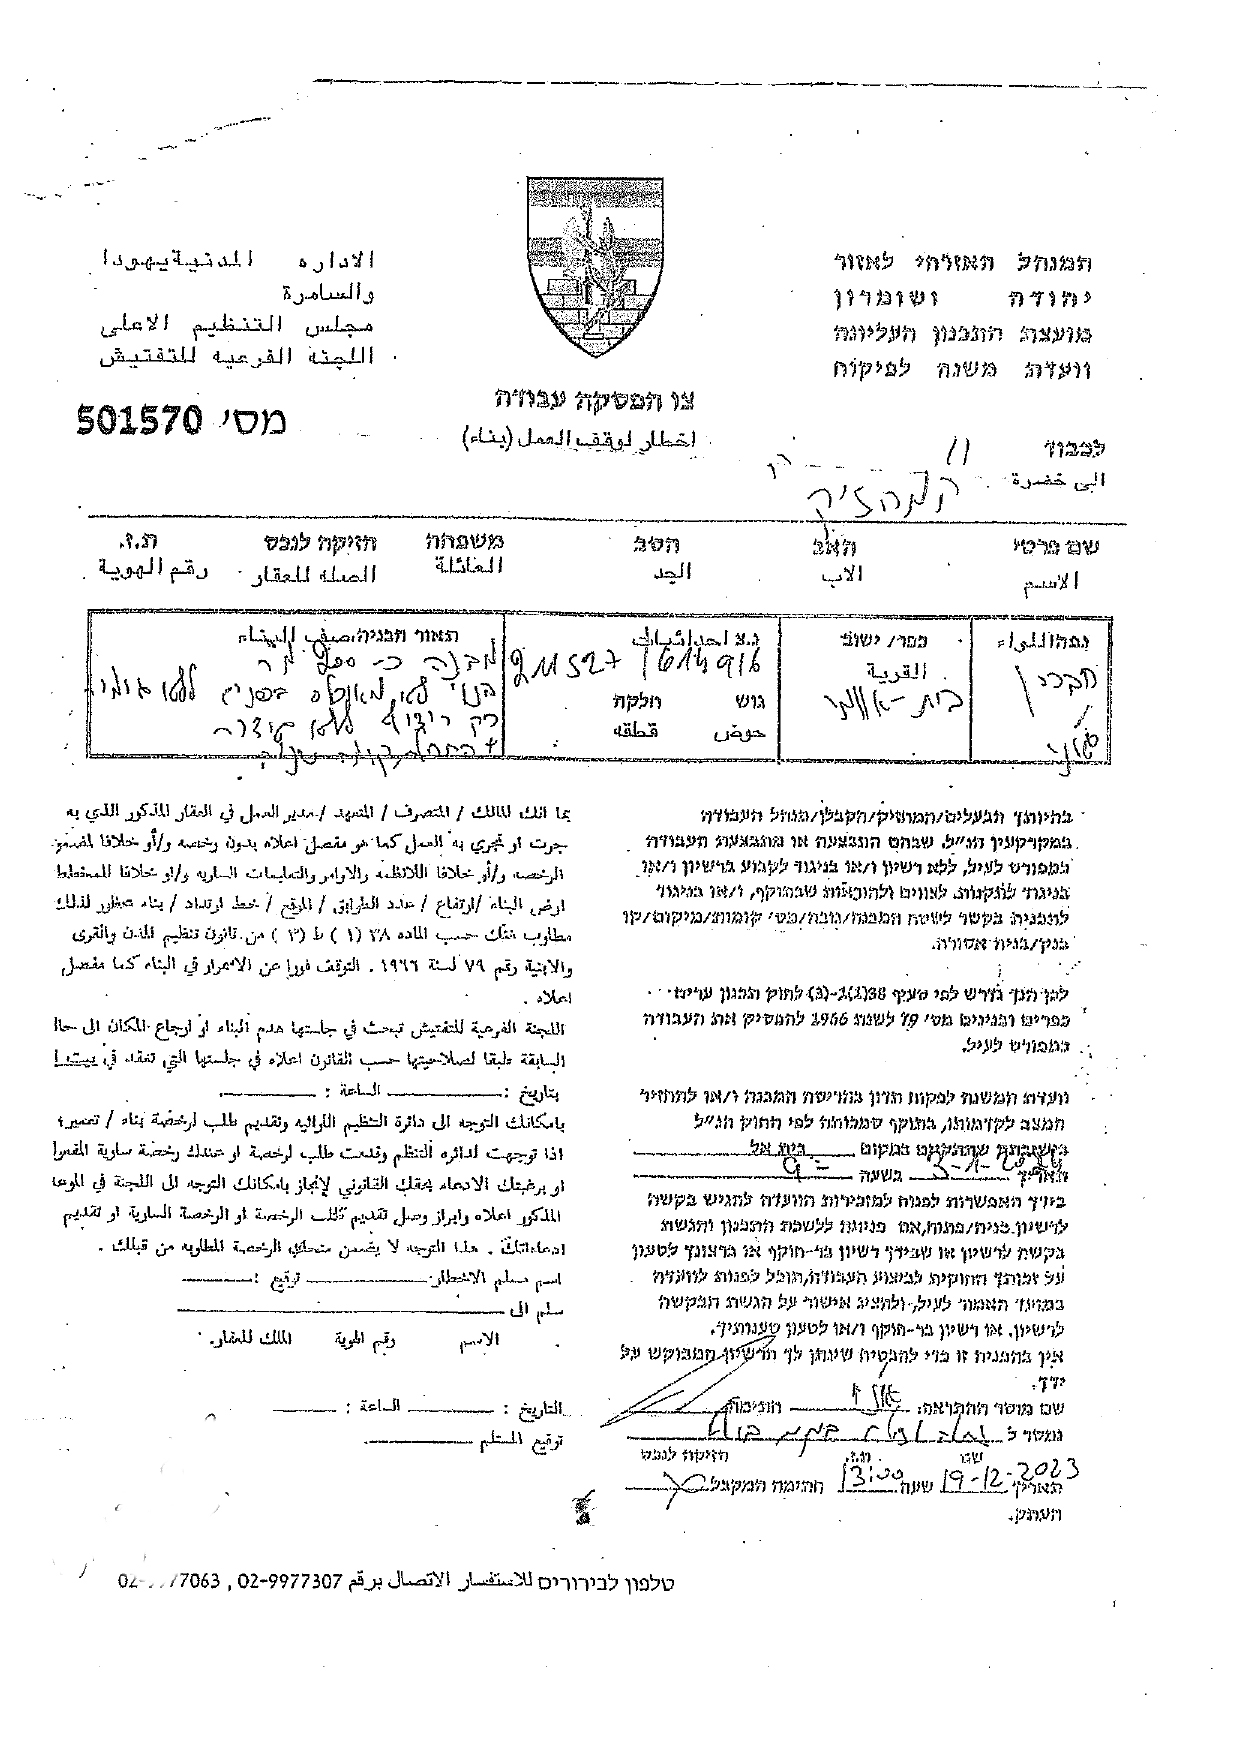 המנהל האזרחי לאזור
יהודה ושומרון
מועצת התכנון העליונה
וועדת משנה לפיקוח
الاداره المدنية يهودا
والسامرة
مجلس التنظيم الاعلى
اللجنة الفرعيه للتفتيش
צו הפסקת עבודה
اخطار لوقف العمل (بناء)
מס' 501570
לכבוד
الى حضرة
המחזיק
שם פרטי האב הסב משפחה חזיקה לנכס ת.ז.
الاسم الاب الجد العائلة الصله للعقار رقم الهوية
נפה/اللواء
חברון
כפר/ ישוב
القرية
בית-אומר
נ.צ احداثيات
211527 / 614916
גוש חלקה
حوض قطعه
תאור הבניה/وصف البناء
מבנה כ- 200 מ"ר
בהיותך הבעלים/המחזיק/הקבלן/מנהל העבודה
במקרקעין הנ"ל, שבהם התבצעה או מתבצעת העבודה
כמפורט לעיל, ללא רשיון ו/או בניגוד לקבוע ברשיון ו/או
בניגוד לתקנות, לצווים ולהוראות שבתוקף, ו/או בניגוד
לתכנית בקשר לשטח המבנה/גובה/מס' קומות/מיקום/קו
בנין/בניה אסורה.
לכן הנך נדרש לפי סעיף 38(1)-(3) לחוק תכנון ערים
כפרים ובנינים מס' 79 לשנת 1966 להפסיק את העבודה
כמפורט לעיל.
וועדת המשנה לפקוח תדון בהריסת המבנה ו/או להחזיר
המצב לקדמותו, בתוקף סמכותה לפי החוק הנ"ל
בישיבתה שתתקיים במקום בית אל
תאריך בשעה
בידך האפשרות לפנות למזכירות הוועדה להגיש בקשה
לרשיון בניה/פתוח, אם פנית ללשכת התכנון והגשת
בקשה לרשיון או שבידך רשיון בר-תוקף או ברצונך לטעון
על זכותך החוקית לביצוע העבודה, תוכל לפנות לוועדה
במועד האמור לעיל, ולהציג אישור על הגשת הבקשה
לרשיון, או רשיון בר-תוקף ו/או לטעון טענותיך.
אין בהפניה זו כדי להבטיח שינתן לך הרשיון המבוקש על
ידך.
שם מוסר ההתראה: חתימה
נמסר ל
שם ת.ז. חזיקה לנכס
תאריך 19-12-2023 שעה 13:00 חתימת המקבל
העתק.
بما انك المالك / المتصرف / المتعهد / مدير العمل في العقار المذكور الذي به
جرت او تجري به العمل كما هو مفصل اعلاه بدون رخصه و/أو خلافا لمضمون
الرخصه و/أو خلافا اللانظمه والاوامر والتعليمات الساريه و/او خلافا للمخطط
ارض البناء /ارتفاع / عدد الطوابق / الموقع / خط ارتداد / بناء محظور لذلك
مطلوب منك حسب الماده ٣٨ (١) ط (٣) من قانون تنظيم المدن والقرى
والابنية رقم ٧٩ لسنة ١٩٦٦ . التوقف فورا عن الاستمرار في البناء كما مفصل
اعلاه .
اللجنة الفرعية للتفتيش تبحث في جلستها هدم البناء او ارجاع المكان الى حالته
السابقة طبقا لصلاحيتها حسب القانون اعلاه في جلستها التي تعقد في
بتاريخ : الساعة :
بامكانك التوجه الى دائرة التنظيم اللوائيه وتقديم طلب لرخصة بناء / تعمير؛
اذا توجهت لدائره التنظم وقدمت طلب لرخصة او عندك رخصة سارية المفعول
او برغبتك الادعاء بحقك القانوني لإنجاز بامكانك التوجه الى اللجنة في الموعد
المذكور اعلاه وابراز وصل تقديم طلب الرخصة او الرخصة السارية او تقديم
ادعاءاتك . هذا التوجه لا يضمن منحك الرخصة المطلوبه من قبلك .
اسم مسلم الاخطار: توقيع :
سلم الى
الاسم رقم الهوية المالك للعقار.
التاريخ : الساعة :
توقيع المستلم
טלפון לבירורים للاستفسار الاتصال برقم 02-9977307 ,